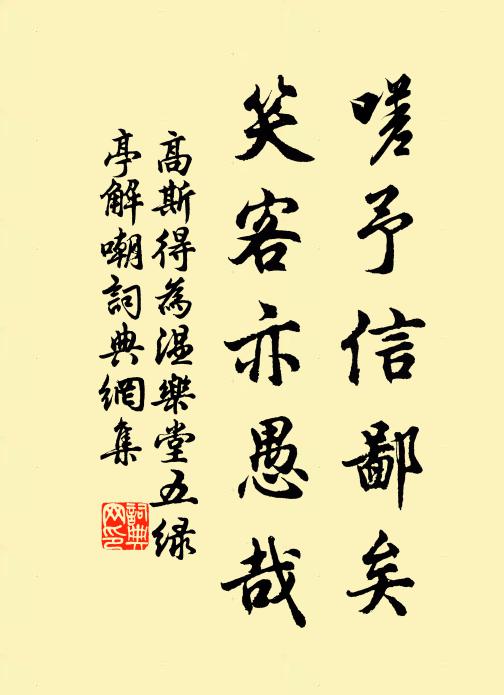 嗟予信鄙矣
笑客亦愚哉
高斯得為溫樂堂五綠
亭解嘲詞典網集
詞典
网印